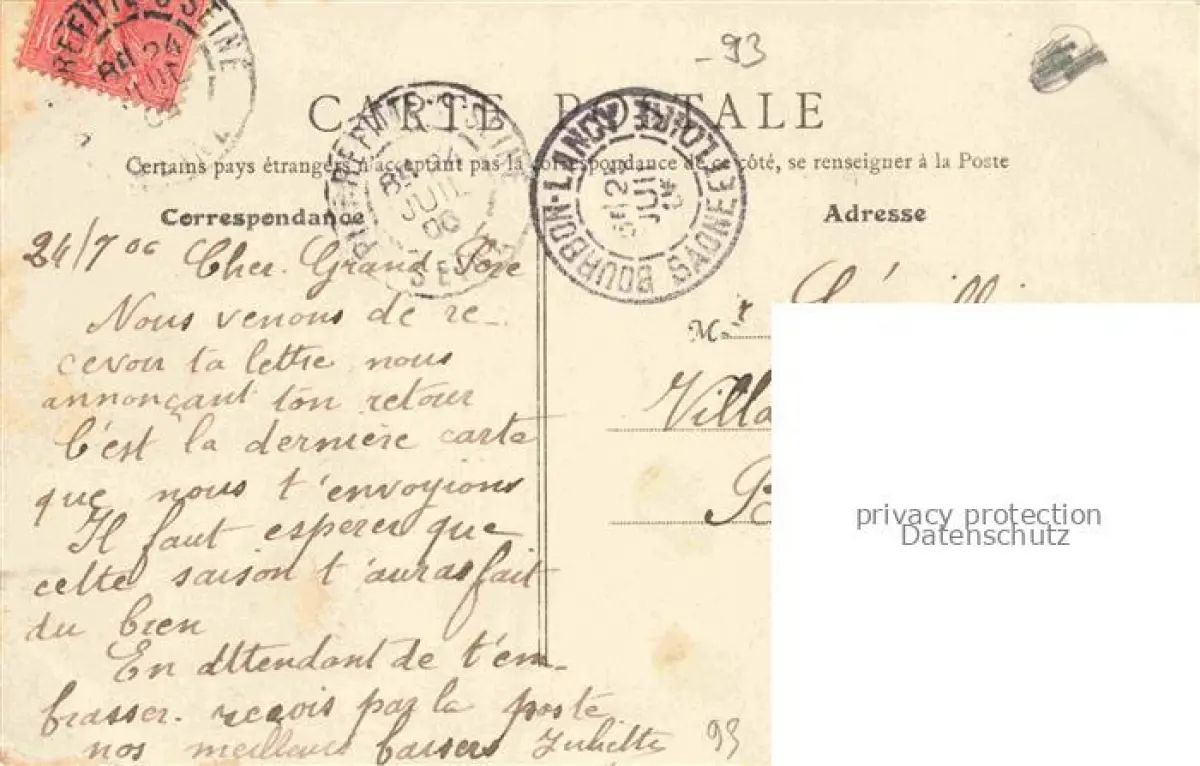 -93
REFITTE-S-SEINE
8H 24
CARTE POSTALE
Certains pays étrangers n'acceptant pas la correspondance de ce côté, se renseigner à la Poste
PIERREFITTE-S-SEINE
24
JUIL
06
SEINE
BOURBON-LANCY SAONE ET LOIRE
25
JUIL
Correspondance
Adresse
24/7 06 Cher Grand Père
Nous venons de re-
cevoir ta lettre nous
annonçant ton retour
C'est la dernière carte
que nous t'envoyions
Il faut esperer que
cette saison t'auras fait
du bien
En attendant de t'em-
brasser. reçois par la poste
nos meilleurs baisers Juliette
Mr
Villa
B
93
privacy protection
Datenschutz